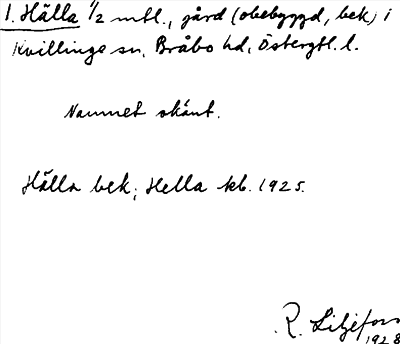 1. Hälla 1/2 mtl., gård (obebyggd, bek) i
Kvillinge sn, Bråbo hd, Östergtl. l.
Namnet okänt.
Hälla bek; Hella kb. 1925.
R. Liljefors
1928